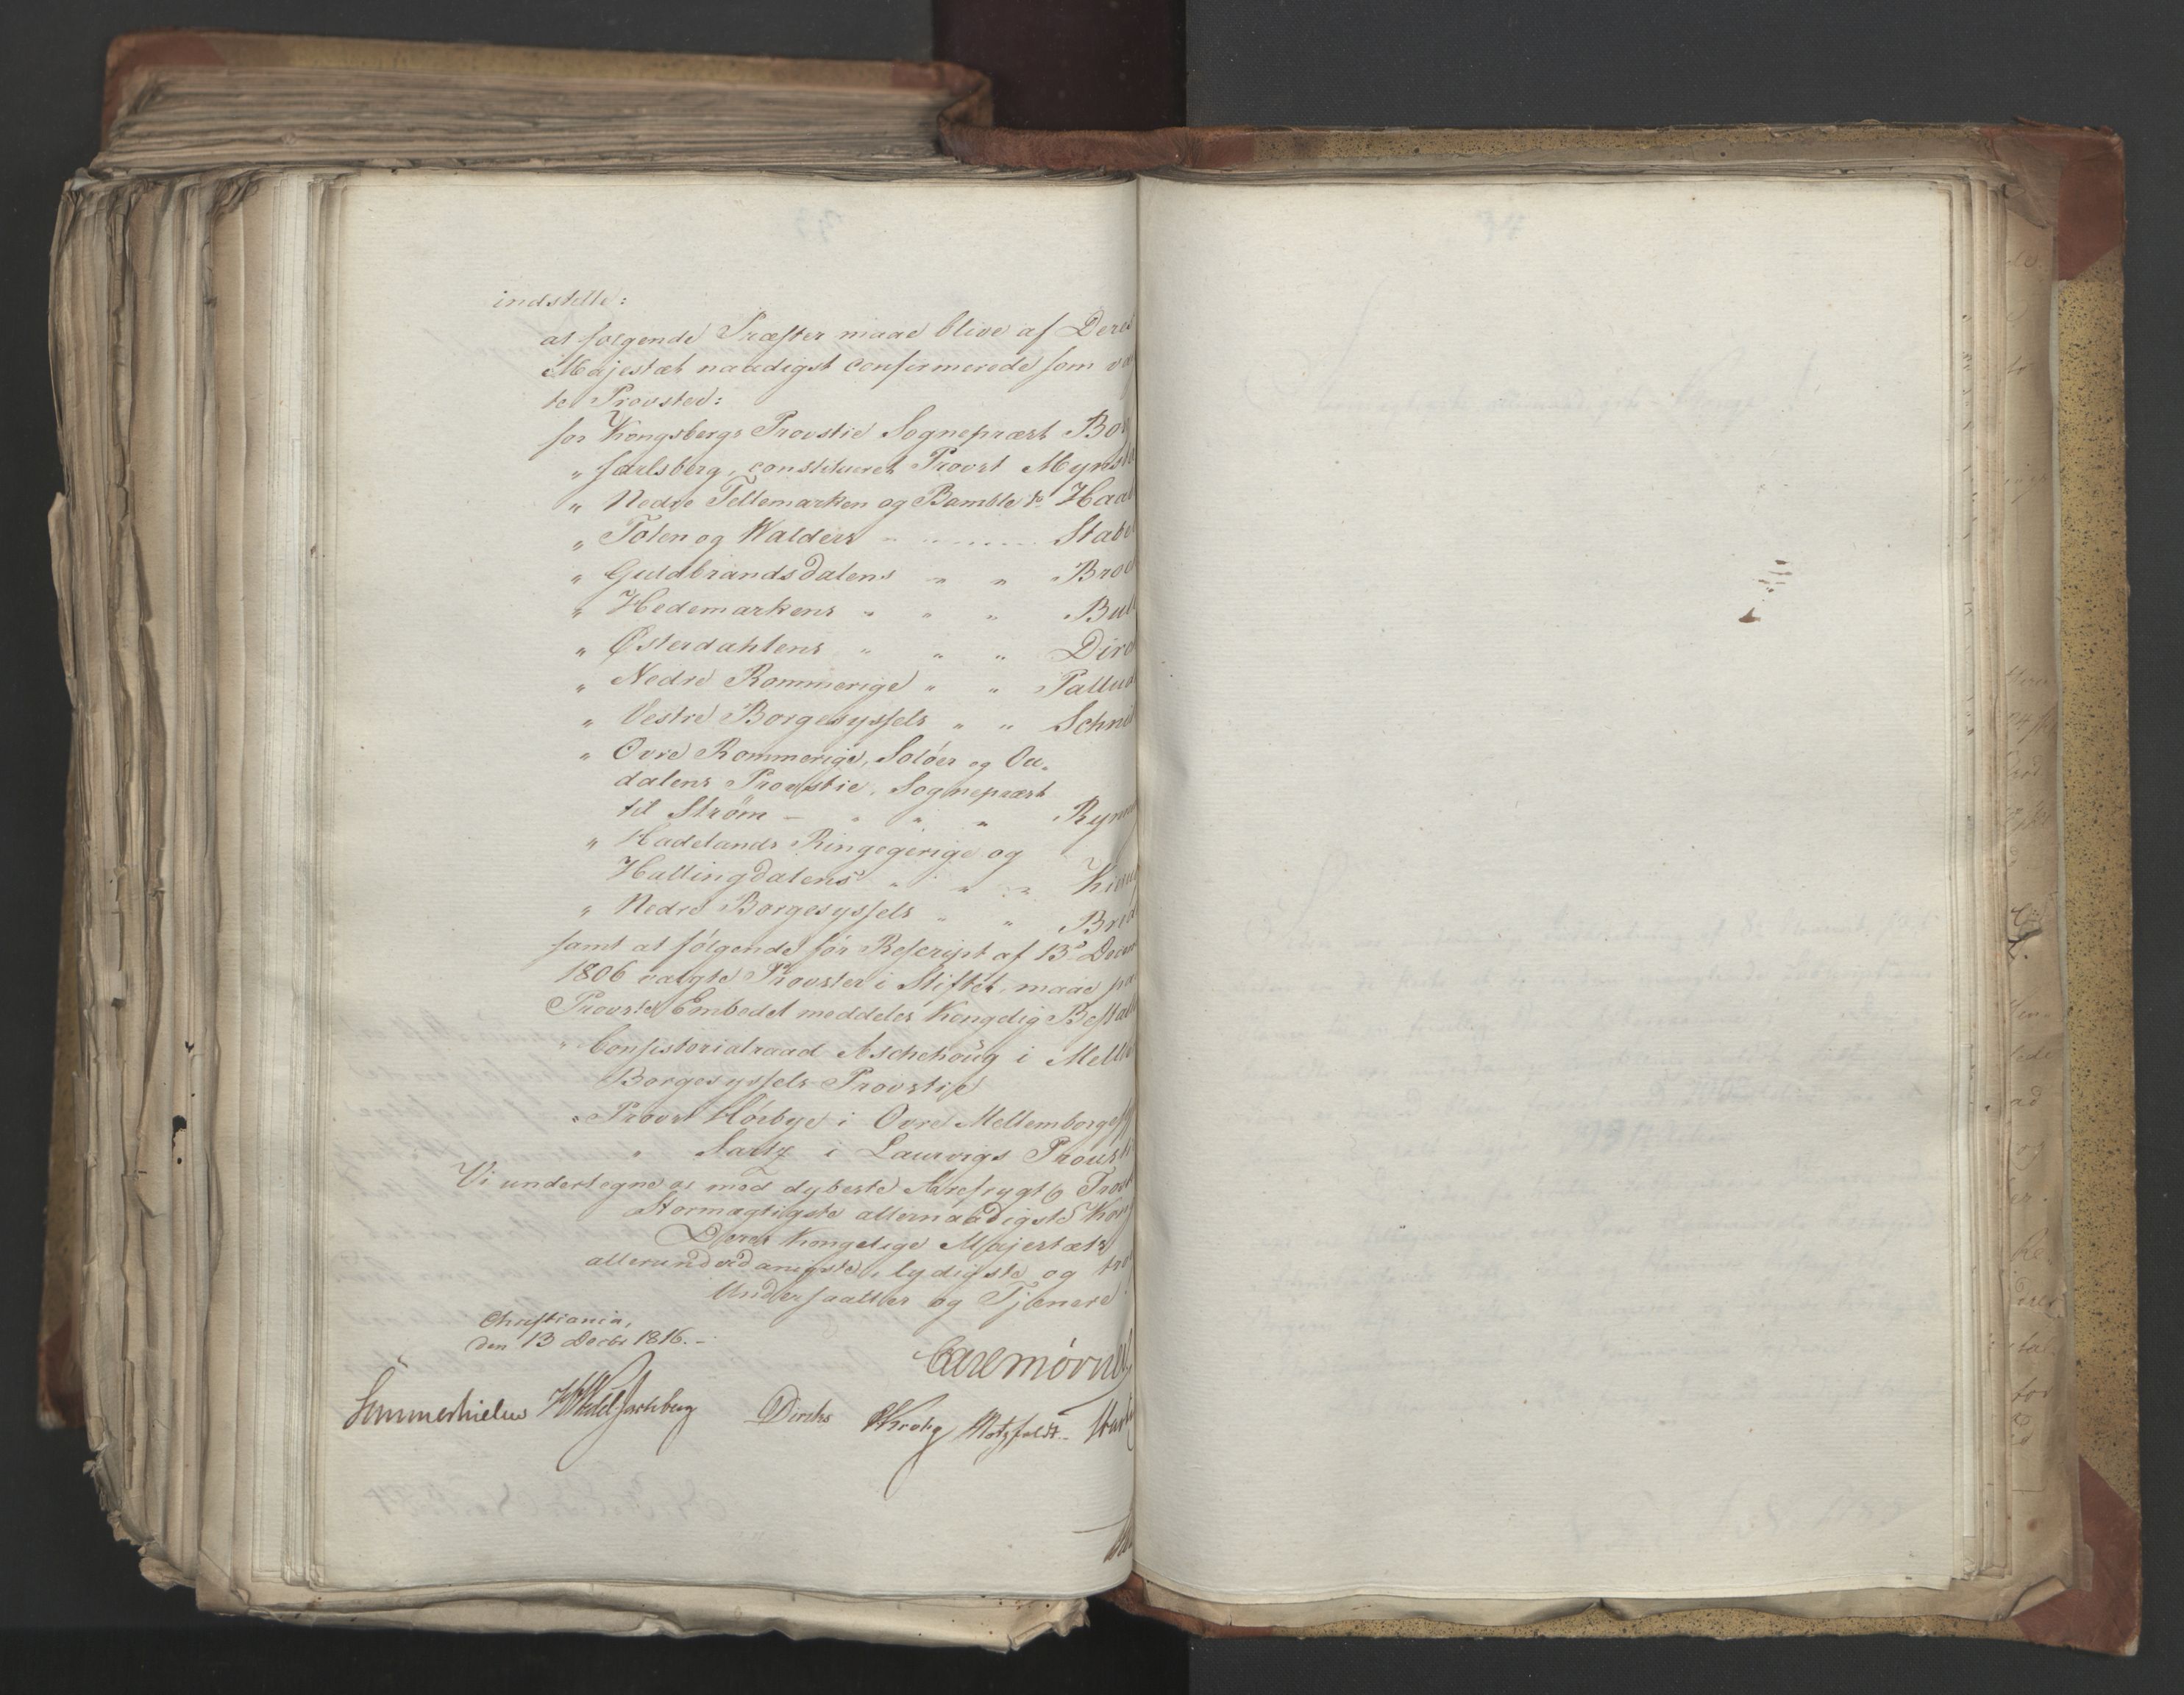 indstille:
at følgende Præster maae blive af Deres
Majestæt naadigst confirmerede som val
te Provster:
for Kongsbergs Provstie Sognepræst Bor
" Jarlsberg, constitueret Provst Mynst
" Nedre Tellemarken og Bamble do Haa
" Toten og Walders " Stabe
" Guldbrandsdalens " " Broc
" Hedemarkens " " " Bul
" Østerdahlens " " " Dirc
" Nedre Rommerige " " Pallud
" Vestre Borgesyssels " " Schnit
" Ovre Rommerige, Soløer og Ou-
dalens Provstie, Sognepræst
til Strøm - " " " Ryn
" Hadelands Ringegerige og
Hallingdalens " " " Kier
" Nedre Borgesyssels " " Bred
samt at følgende før Rescript af 13de Decem
1806 valgte Provster i Stiftet, maae paa
Provste Embedet meddeles Kongelig Bestall
" Consistorialraad Aschehoug i Mell
Borgesyssels Provstie
" Provst Hørbye i Ovre Mellemborgess
" Sartz i Laurvigs Provsti
Vi undertegne os med dybeste Ærefrygt og Trosk
Stormægtigste allernaadigste Kong
Deres Kongelige Majestæts
allerunderdanigste, lydigste og tro
Undersaatter og Tjenere
Christiania,
den 13 Decbr 1816.-
Carl Mörner
Sommerhielm HWedel Jarlsberg Diriks CKrohg Motzfeldt